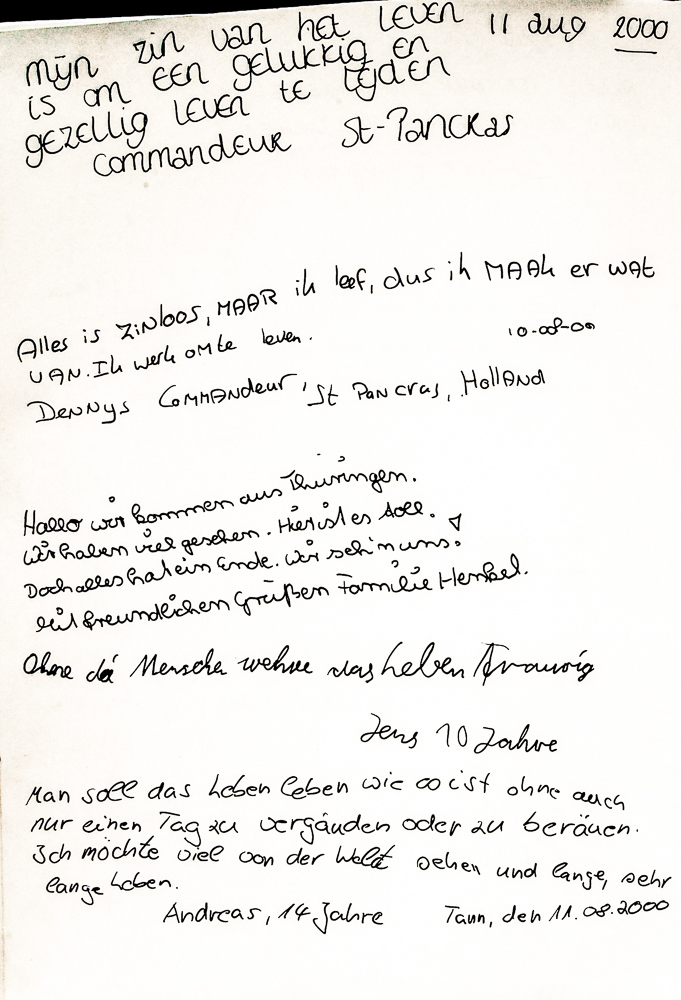 Mijn zin van het leven 11 aug 2000
is om een gelukkig en
gezellig leven te lijden
Commandeur St-Panckas
Alles is zinloos, MAAR ik leef, dus ik MAAk er wat
VAN. Ik werk om te leven. 10-08-00
Dennys Commandeur, St Pancras, Holland
Hallo wir kommen aus Thüringen.
Wir haben viel gesehen. Hier ist es toll.
Doch alles hat ein Ende. Wir seh'n uns!
Mit freundlichen Grüßen Familie Henkel.
Ohne die Mensche wehre das Leben Trauwig
Jens 10 Jahre
Man soll das Leben leben wie es ist ohne auch
nur einen Tag zu vergäuden oder zu beräuen.
Ich möchte viel von der Welt sehen und lange, sehr
lange leben.
Andreas, 14 Jahre Tann, den 11.08.2000